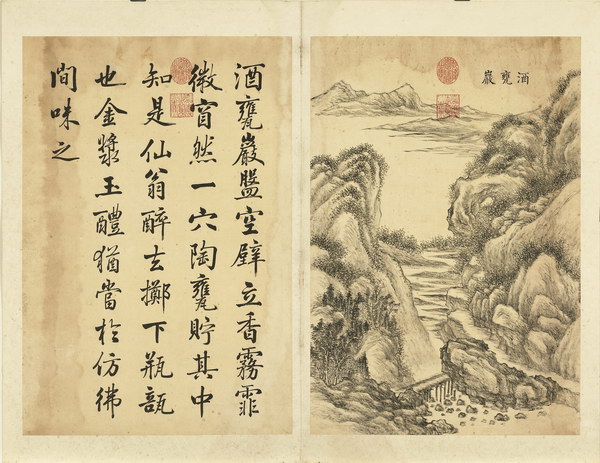 酒甕巖
酒甕巖盤空壁立香霧霏
微窅然一穴陶甕貯其中
知是仙翁醉去擲下瓶瓿
也金漿玉醴猶當於仿彿
間味之